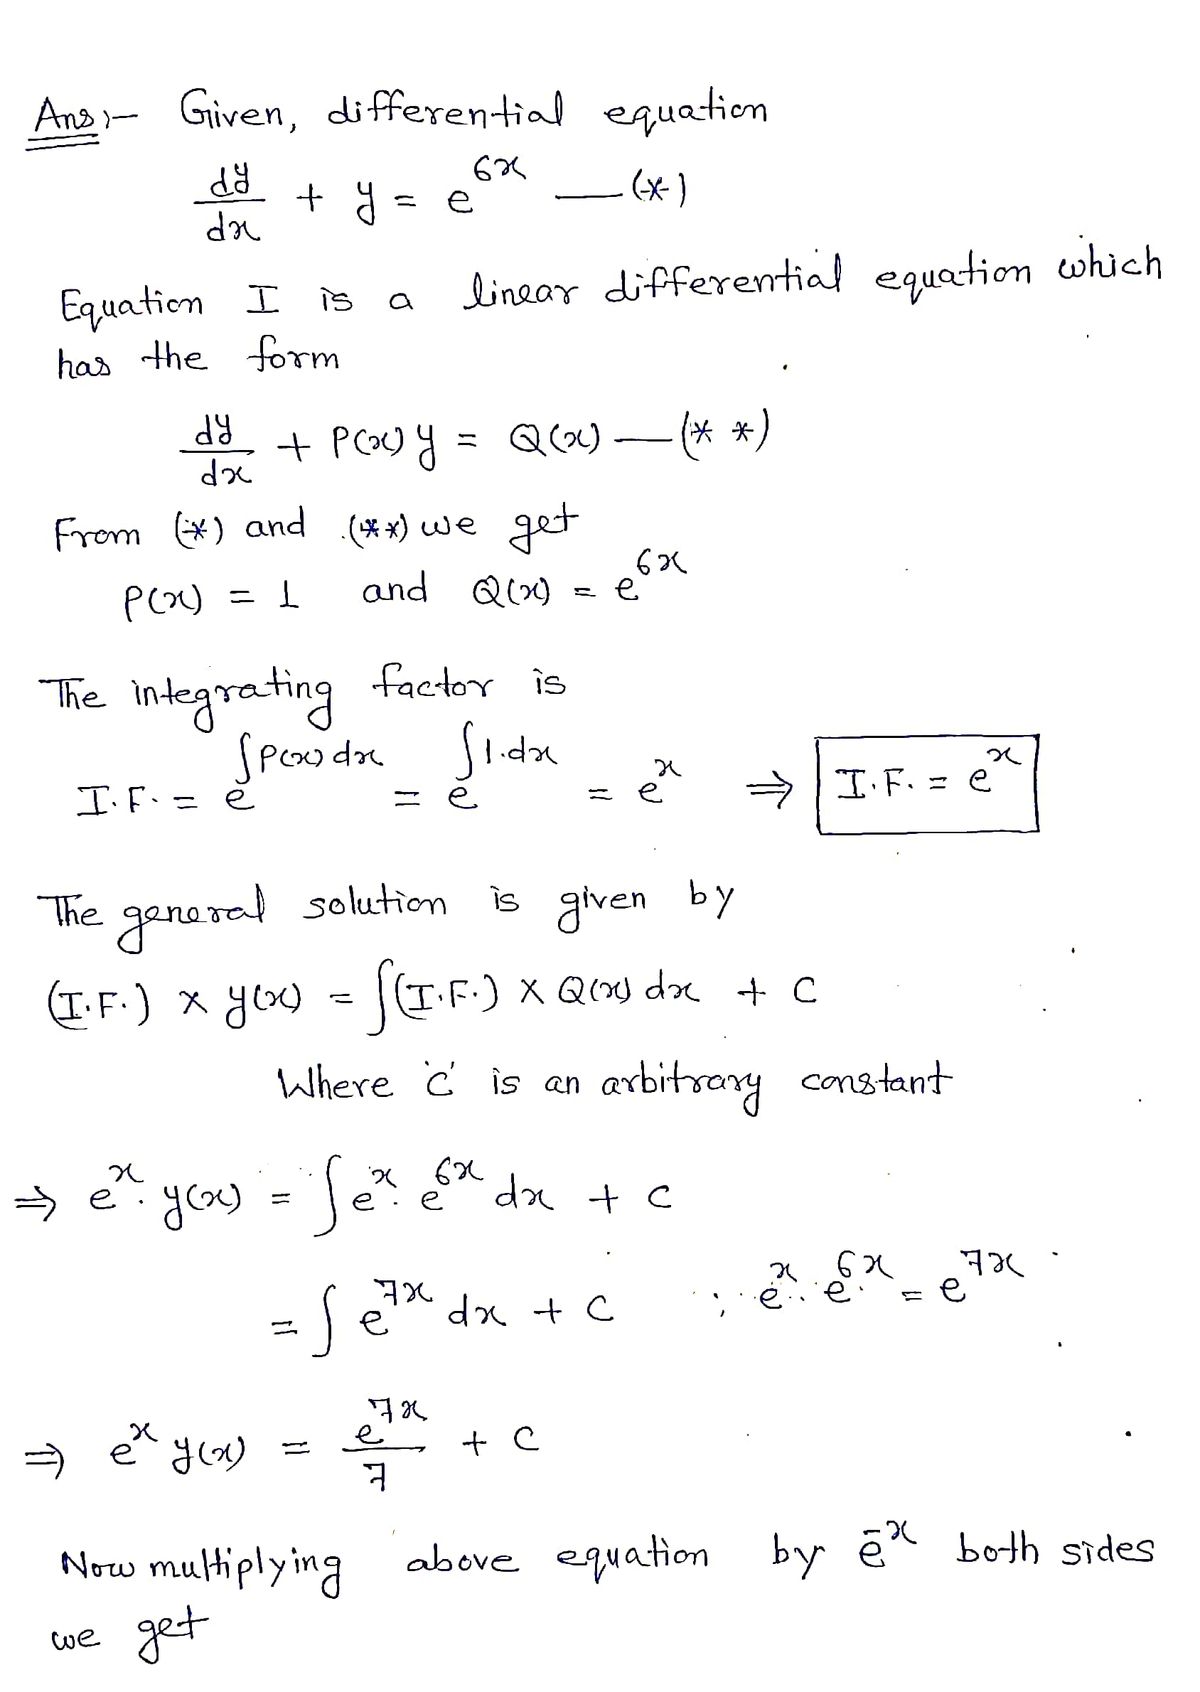 Ans:- Given, differential equation
dy/dx + y = e^6x — (*)
Equation I is a linear differential equation which
has the form
dy/dx + P(x) y = Q(x) — (* *)
From (*) and (**) we get
P(x) = 1 and Q(x) = e^6x
The integrating factor is
I.F. = e^∫P(x) dx = e^∫1.dx = e^x ⇒ I.F. = e^x
The general solution is given by
(I.F.) × y(x) = ∫(I.F.) × Q(x) dx + C
Where 'C' is an arbitrary constant
⇒ e^x. y(x) = ∫e^x. e^6x dx + C
= ∫ e^7x dx + C ; e^x. e^6x = e^7x
⇒ e^x y(x) = e^7x/7 + C
Now multiplying above equation by e^-x both sides
we get